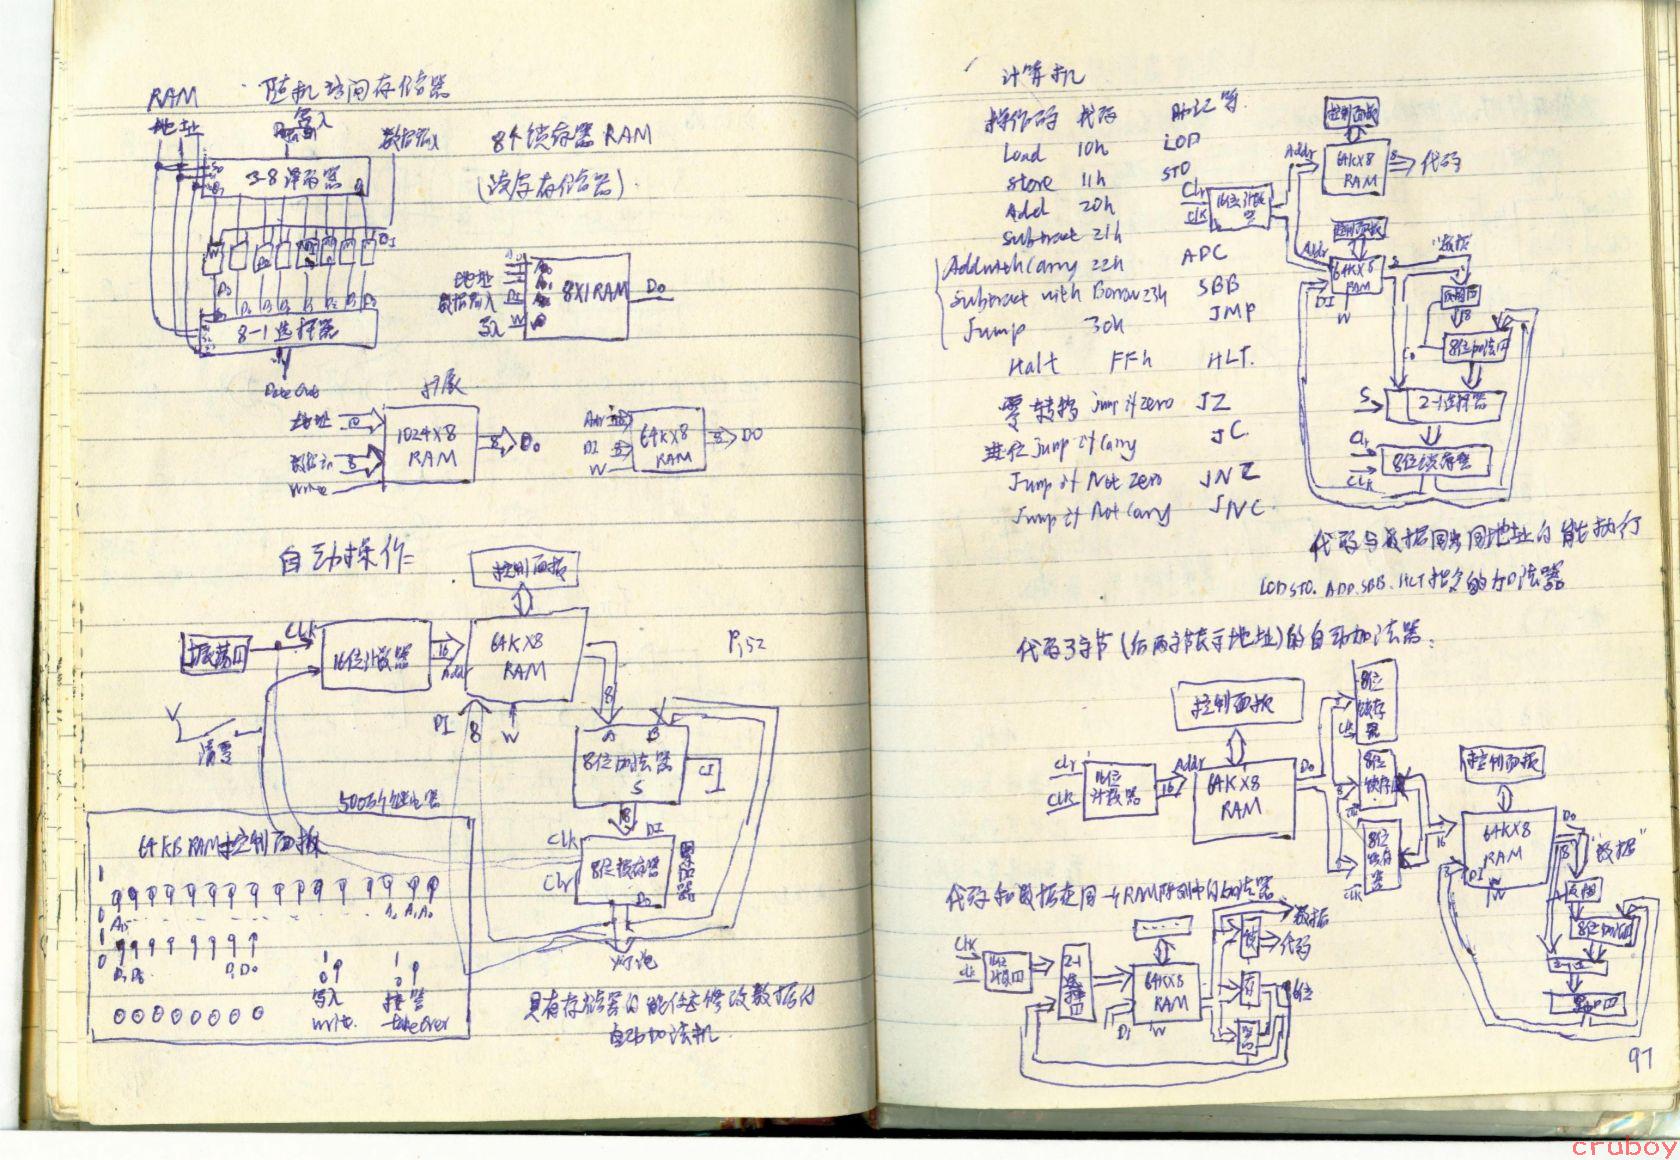 RAM
随机访问存储器
地址
写入
数据输入
3-8译码器
8个锁存器RAM
(读写存储器).
DI
8-1选择器
Data Out
地址
数据输入
写入
DI
W
8X1RAM
Do
扩展
地址
10
8
Write
1024X8
RAM
8
Do
Addr
16
DI
8
W
64KX8
RAM
8
DO
自动操作
控制面板
振荡器
CLK
16位计数器
16
Addr
64KX8
RAM
P152
DI
8
W
8
V
清零
A
B
8位加法器
S
CI
8
DI
CLK
Clr
8位锁存器
Do
灯泡
500万个继电器
64KB RAM控制面板
1
0
A15
A2 A1 A0
1
0
D7 D6
D1 D0
1
0
写入
write.
1
0
接管
takeOver
具有存储器的能任意修改数据的
自动加法机.
计算机
操作码 代码 助记符.
Load 10h LOD
Store 11h STO
Add 20h
Subtract 21h
Add with Carry 22h ADC
Subtract with Borrow 23h SBB
Jump 30h JMP
Halt FFh HLT.
零转移 jump if zero JZ
进位 jump if Carry JC
Jump if Not Zero JNZ
Jump if Not Carry JNC
控制面板
Addr
64KX8
RAM
8
代码
Clr
CLK
16位计数器
控制面板
Addr
64KX8
RAM
DI
W
8
"数据"
8
8位加法器
S
2-1选择器
Clr
CLK
8位锁存器
代码与数据同步同地址的能执行
LOD STO. ADD. SBB. HLT指令的加法器
代码3字节(后两字节表示地址)的自动加法器:
控制面板
Clr
CLK
16位
计数器
16
Addr
64KX8
RAM
Do
8位
锁存
器
8位
锁存器
8位
锁存
器
Clk
16
控制面板
64KX8
RAM
DI
W
Do
8
"数据"
反相
8位加法器
代码和数据在同一个RAM阵列中的加法器
CLK
16位
计数器
2-1
选择器
64KX8
RAM
DI
W
数据
代码
锁
存
器
8位
97
cruboy